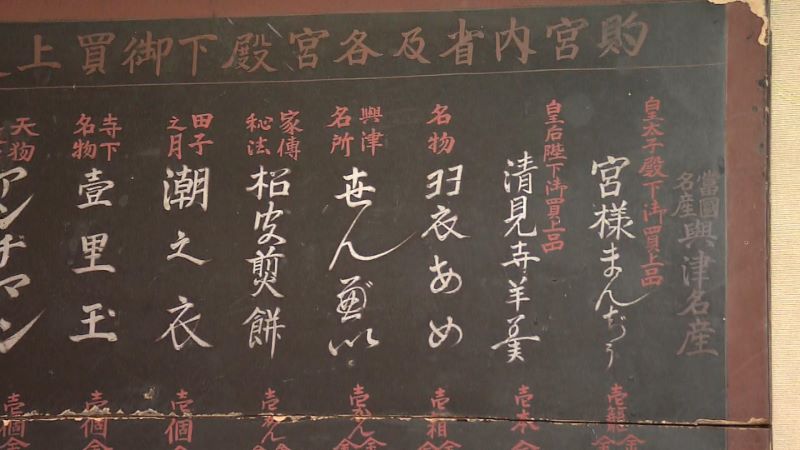 宮内省及各宮殿下御買上
當國名産 興津名産
皇太子殿下御買上品
宮様まんぢう
壱籠
皇后陛下御買上品
清見寺羊羹
壱本
名物
羽衣あめ
壱箱
興津名所
せんべい
家傳秘法
松皮煎餅
田子之月
潮之衣
壱個
寺下名物
壹里玉
壱個
天狗
アンヂマン
壱個